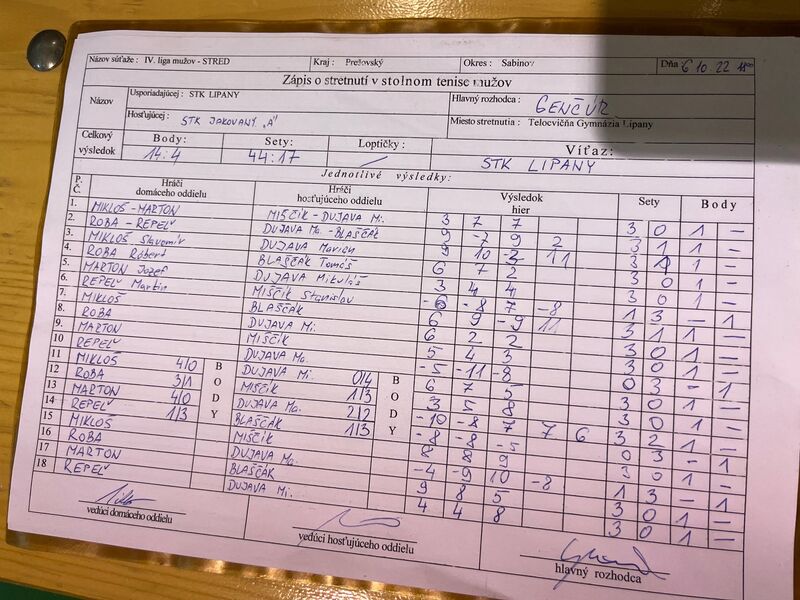 Názov súťaže : IV. liga mužov - STRED Kraj : Prešovský Okres : Sabinov Dňa 6 10. 22 18⁰⁰
Zápis o stretnutí v stolnom tenise mužov
Názov Usporiadajúcej : STK LIPANY Hlavný rozhodca : GENČÚR
Hosťujúcej : STK JAKOVANY „A" Miesto stretnutia : Telocvičňa Gymnázia Lipany
Celkový výsledok Body: 14:4 Sety: 44:17 Loptičky : Víťaz: STK LIPANY
Jednotlivé výsledky:
P. Č. Hráči domáceho oddielu Hráči hosťujúceho oddielu Výsledok hier Sety Body
1. MIKLOŠ-MARTON MIŠČÍK - DUJAVA Mi. 3 7 7 3 0 1 -
2. ROBA - REPEĽ DUJAVA Ma. - BLAŠČÁK 9 -7 9 2 3 1 1 -
3. MIKLOŠ Slavomír DUJAVA Marian 9 10 -2 11 3 1 1 -
4. ROBA Róbert BLAŠČÁK Tomáš 6 7 2 3 0 1 -
5. MARTON Jozef DUJAVA Mikuláš 3 4 4 3 0 1 -
6. REPEĽ Martin MIŠČÍK Stanislav -6 -8 7 -8 1 3 - 1
7. MIKLOŠ BLAŠČÁK 6 9 -9 11 3 1 1 -
8. ROBA DUJAVA Mi. 6 2 2 3 0 1 -
9. MARTON MIŠČÍK 5 4 3 3 0 1 -
10 REPEĽ DUJAVA Ma. -5 -11 -8 0 3 - 1
11 MIKLOŠ 4/0 B DUJAVA Mi. 0/4 B 6 7 5 3 0 1 -
12 ROBA 3/1 O MIŠČÍK 1/3 O 3 5 8 3 0 1 -
13 MARTON 4/0 D DUJAVA Ma. 2/2 D -10 -8 7 7 6 3 2 1 -
14 REPEĽ 1/3 Y BLAŠČÁK 1/3 Y -8 -8 -5 0 3 - 1
15 MIKLOŠ MIŠČÍK 8 8 9 3 0 1 -
16 ROBA DUJAVA Ma. -4 -9 10 -8 1 3 - 1
MARTON BLAŠČÁK 9 8 5 3 0 1 -
18 REPEĽ DUJAVA Mi. 4 4 8 3 0 1 -
vedúci domáceho oddielu
vedúci hosťujúceho oddielu
hlavný rozhodca